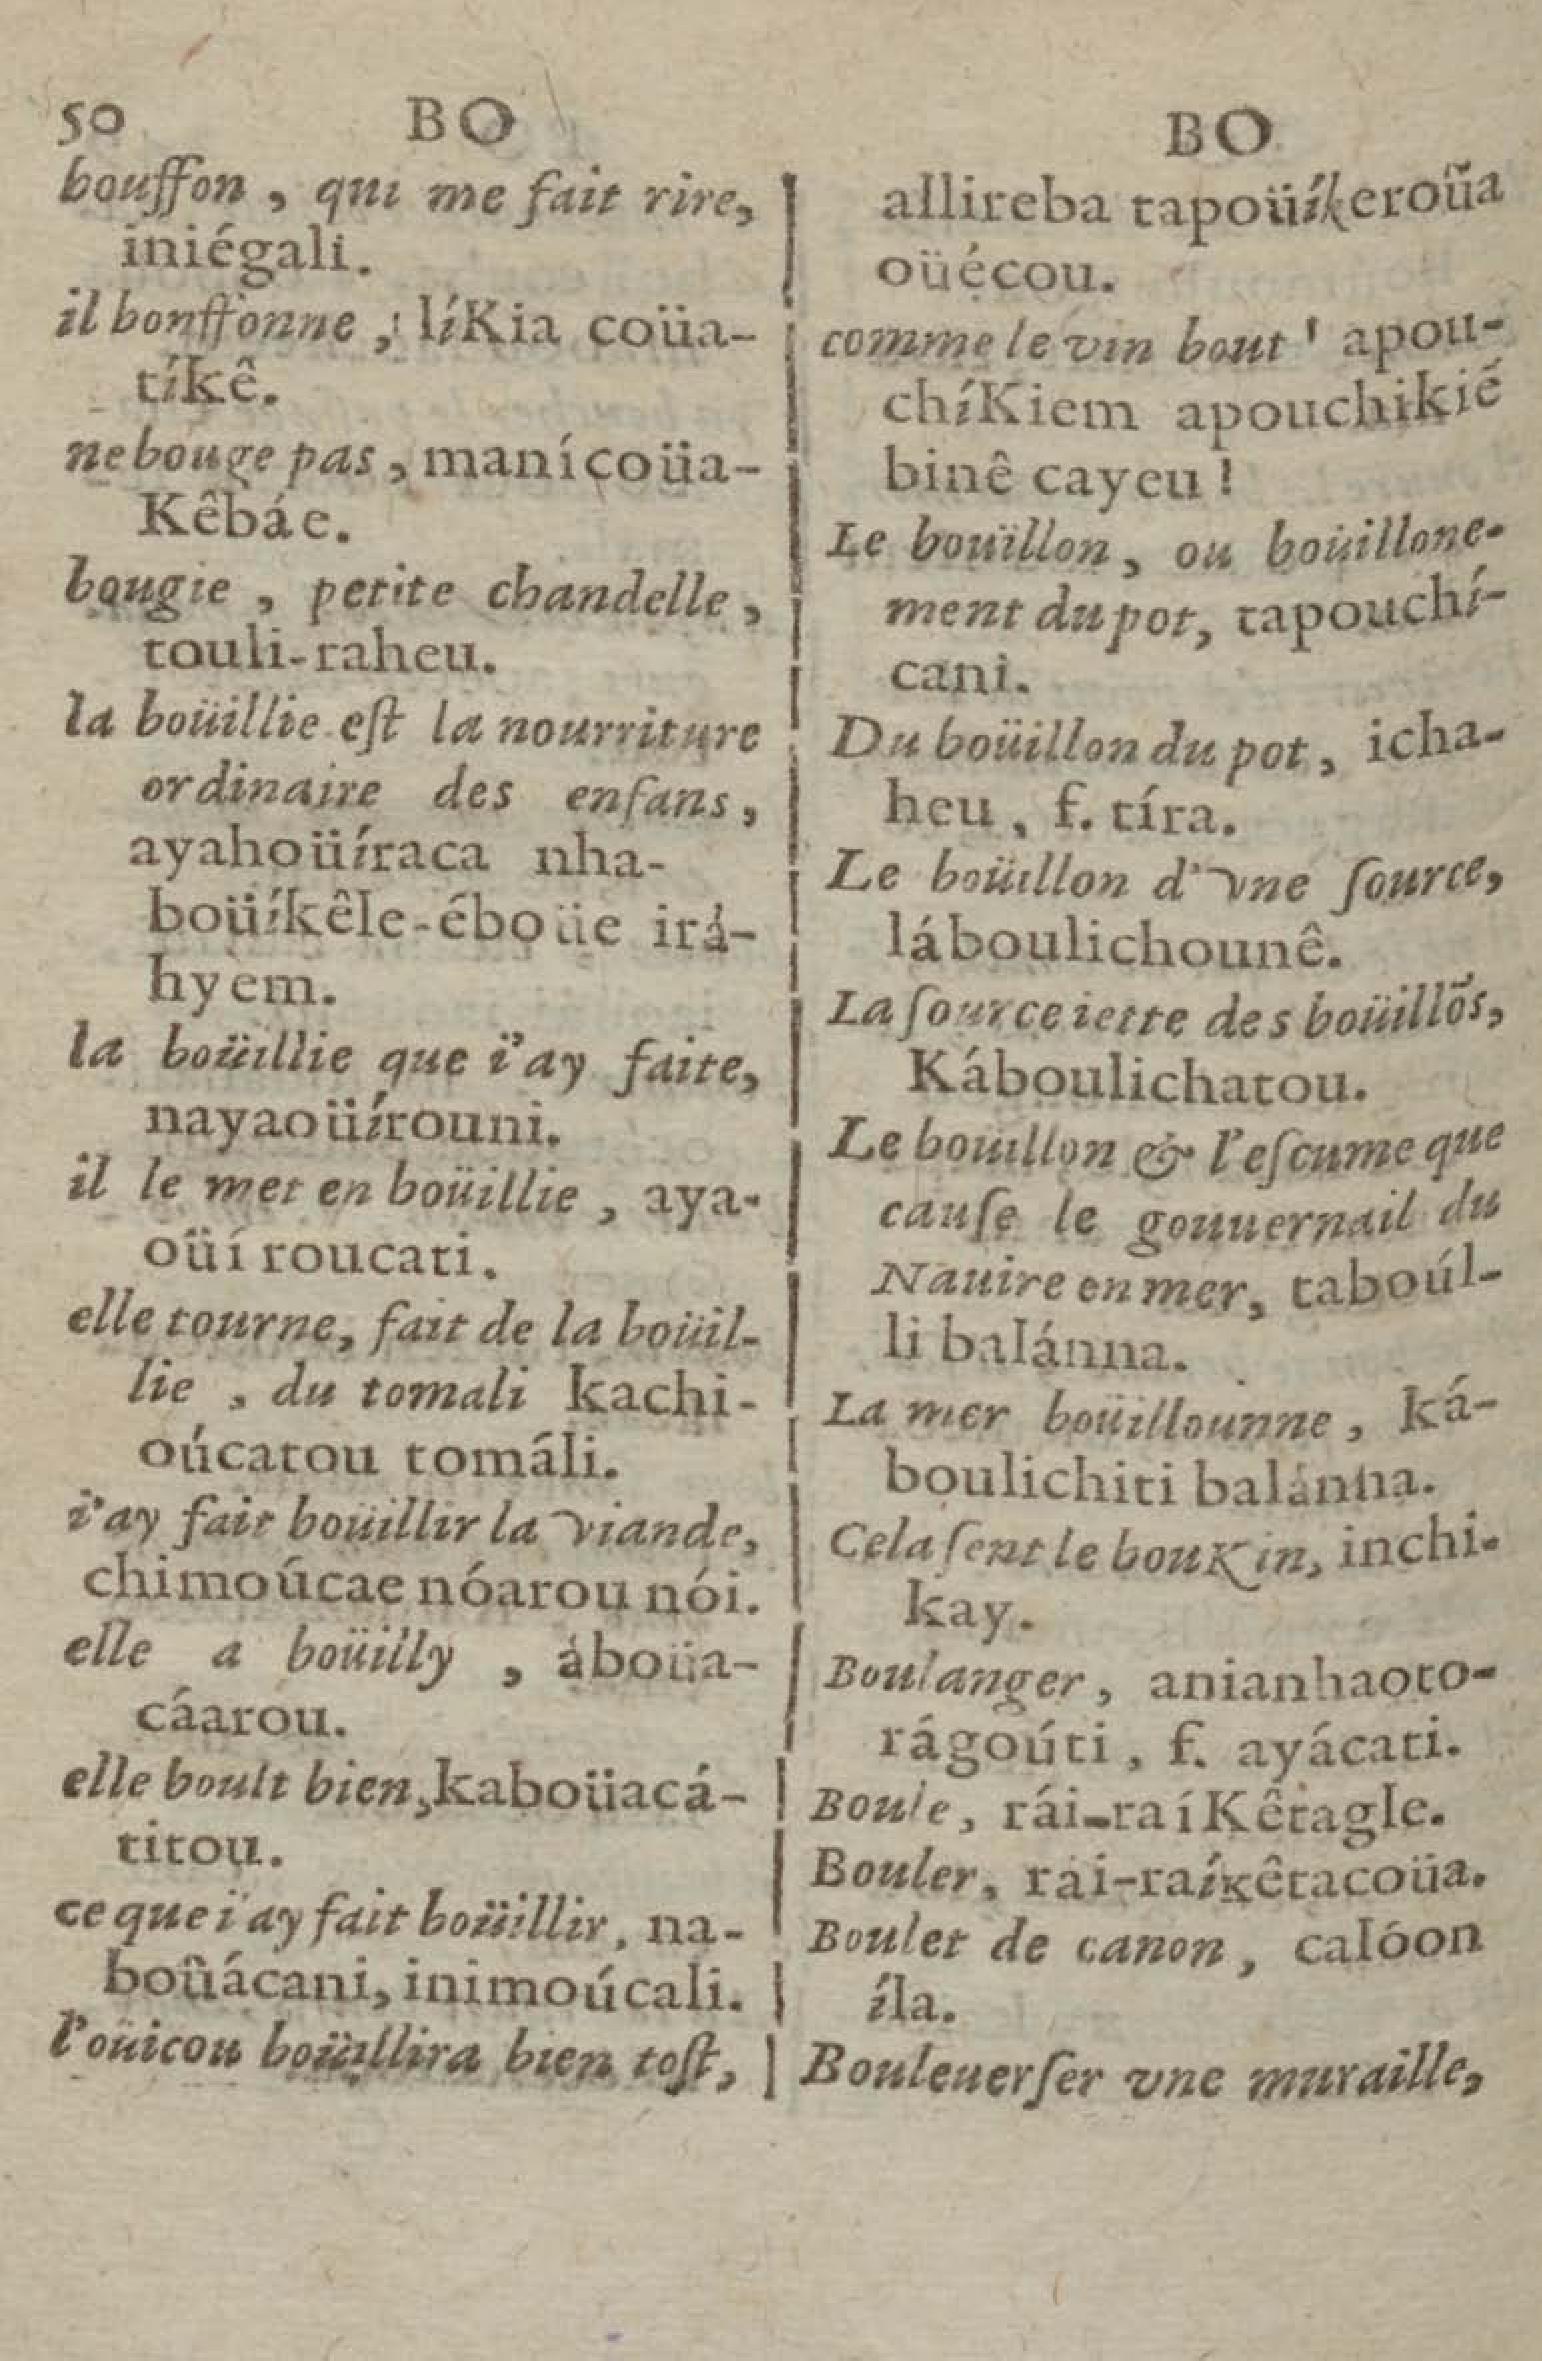 50 BO
bouffon, qui me fait rire,
iniégali.
il bonffonne, líKia coüa-
tíkê.
ne bouge pas, manícoüa-
Kêbáe.
bougie, petite chandelle,
touli-raheu.
la boüillie est la nourriture
ordinaire des enfans,
ayahoüíraca nha-
boüíkêle-éboüe irá-
hyem.
la boüillie que i'ay faite,
nayaoüírouni.
il le met en boüillie, aya-
oüíroucati.
elle tourne, fait de la boüil-
lie, du tomali kachi-
oúcatou tomáli.
i'ay fait boüillir la viande,
chimoúcae nóarou nói.
elle a boüilly, áboüa-
cáarou.
elle boult bien, kaboüacá-
titou.
ce que i'ay fait boüillir, na-
boüácani, inimoúcali.
l'oüicou boüillira bien tost,
BO
allireba tapoüíkeroüa
oüécou.
comme le vin bout ! apou-
chíKiem apouchikié
binê cayeu !
Le boüillon, ou boüillone-
ment du pot, tapouchí-
cani.
Du boüillon du pot, icha-
heu, f. tíra.
Le boüillon d'vne ſource,
láboulichounê.
La ſource iette des boüillõs,
Káboulichatou.
Le boüillon & l'eſcume que
cauſe le gouuernail du
Nauire en mer, taboúl-
li balánna.
La mer boüillounne, ká-
boulichiti balánna.
Cela ſent le bouKin, inchi-
kay.
Boulanger, anianhaoto-
rágoúti, f. ayácati.
Boule, rái-raíKêtagle.
Bouler, rai-raíkêtacoüa.
Boulet de canon, calóon
íla.
Bouleuerſer vne muraille,